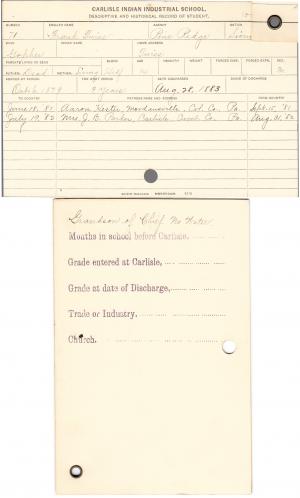 CARLISLE INDIAN INDUSTRIAL SCHOOL.
DESCRIPTIVE AND HISTORICAL RECORD OF STUDENT.
NUMBER ENGLISH NAME AGENCY NATION
71 Frank Twiss Pine Ridge Sioux
INDIAN NAME HOME ADDRESS
PARENTS LIVING OR DEAD BLOOD AGE HEIGHT WEIGHT FORCED INSP. FORCED EXPR. SEX
FATHER, Dead MOTHER, Living Half M.
ARRIVED AT CARLISLE FOR WHAT PERIOD DATE DISCHARGED CAUSE OF DISCHARGE
Oct. 6. 1879 3 Years Aug. 28, 1883
TO COUNTRY PATRONS NAME AND ADDRESS FROM COUNTRY
June 18, '81 Aaron Kester, Mordansville, Col. Co. Pa. Sept. 15, '81
July 19, '82 Mrs. J. B. Parker, Carlisle, Cumb. Co. Pa. Aug. 31, 82
Grandson of Chief No Water
Months in school before Carlisle,
Grade entered at Carlisle,
Grade at date of Discharge,
Trade or Industry.
Church.